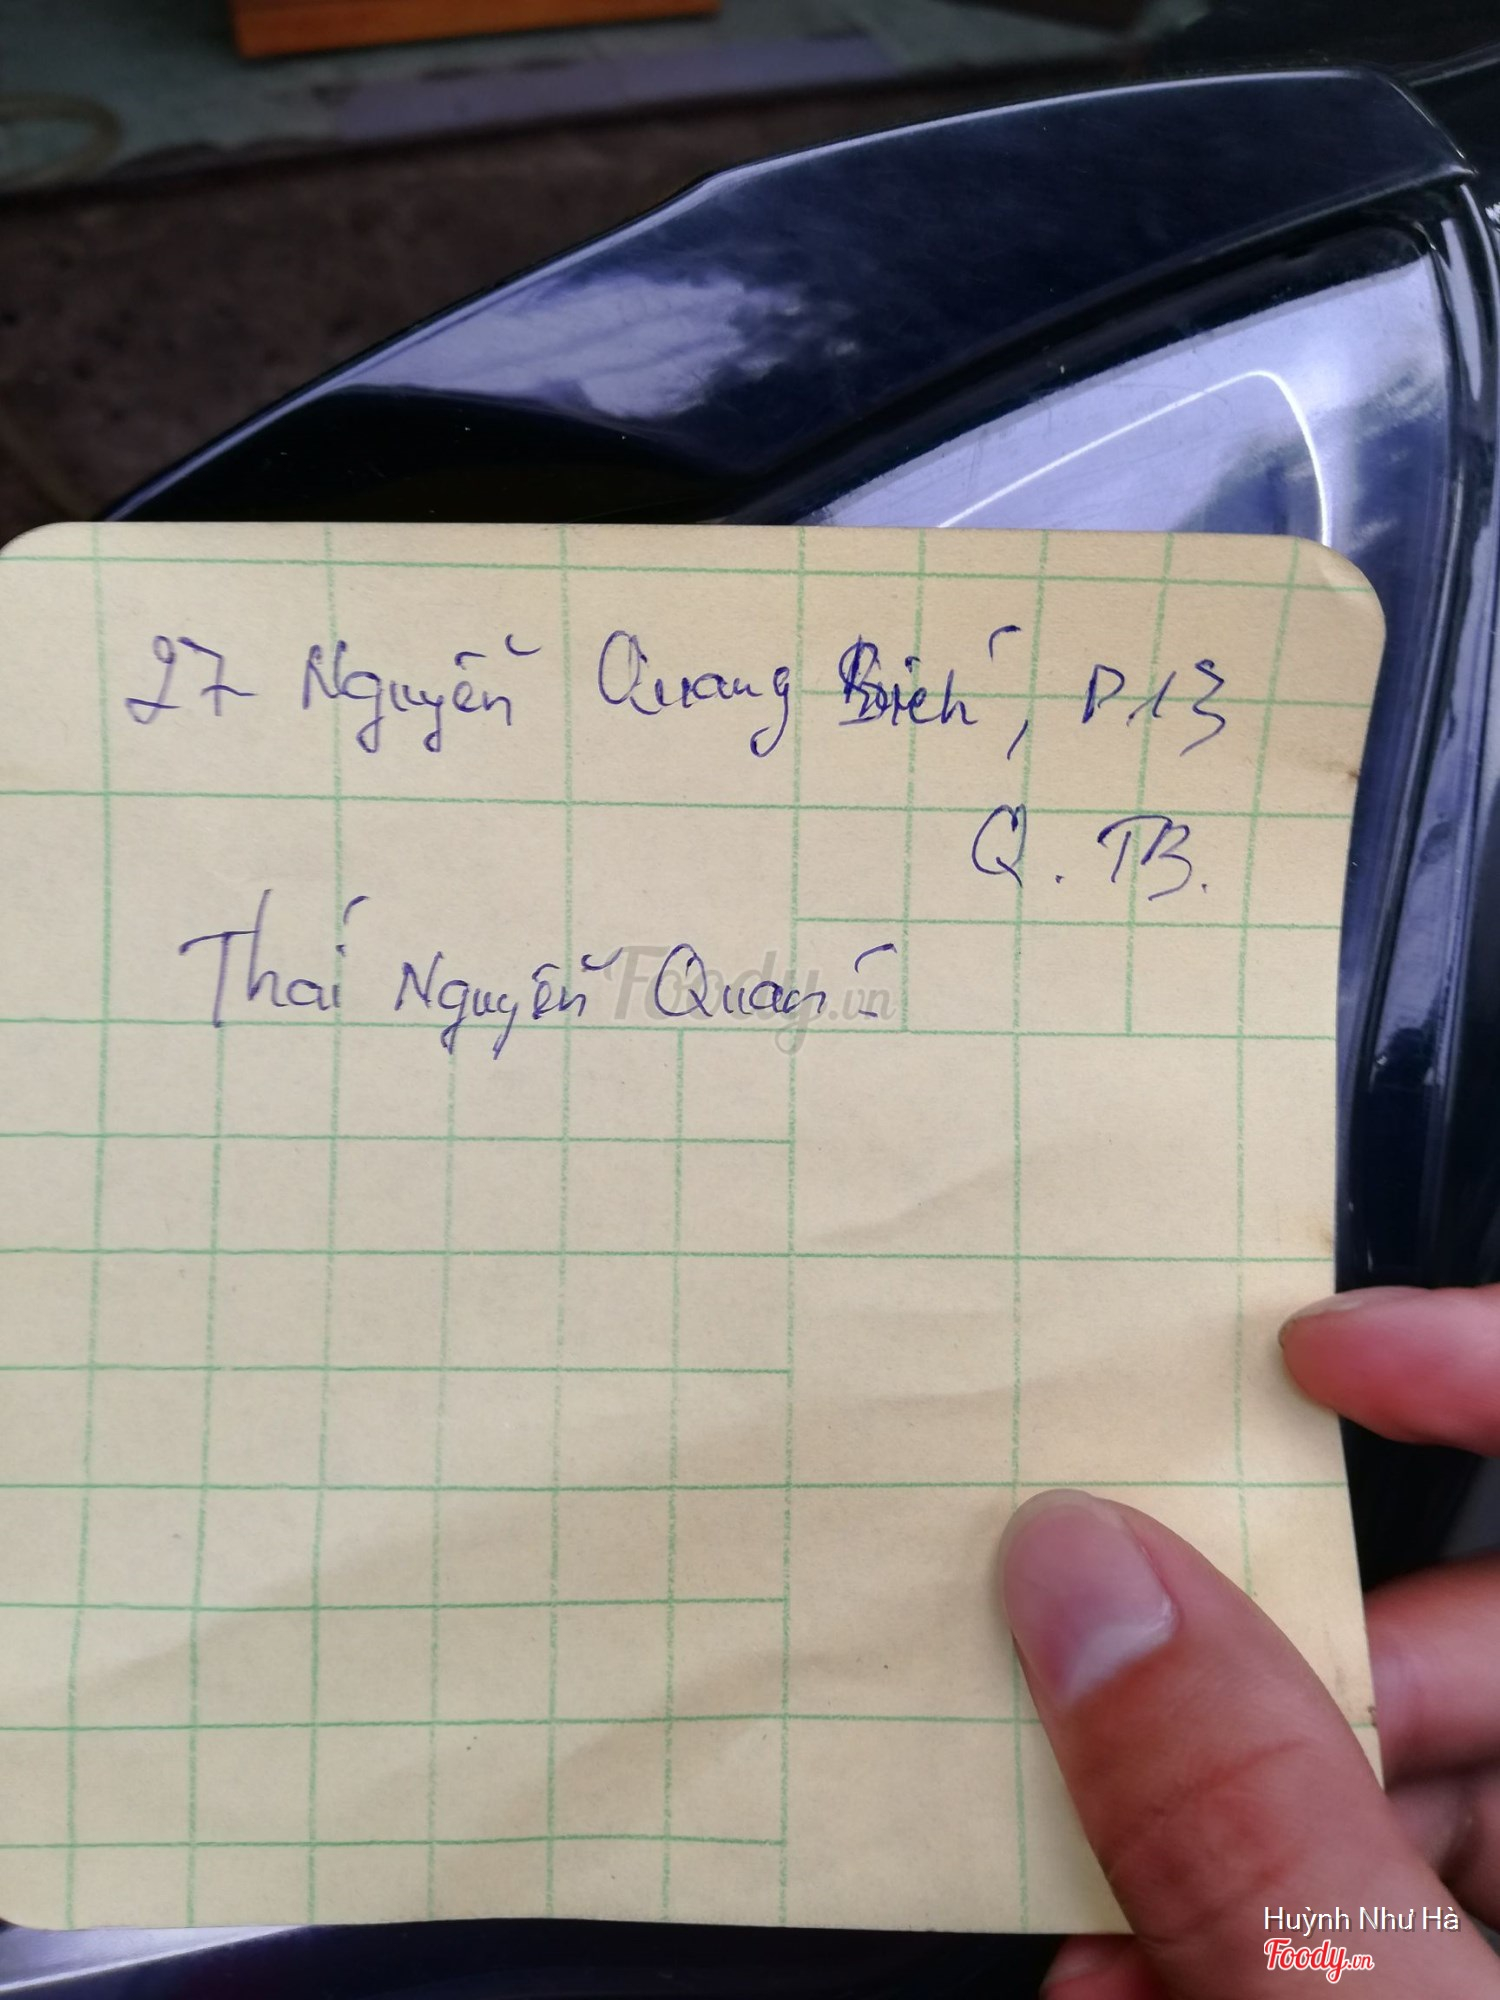 27 Nguyễn Quang Bích, P.13
Q. TB.
Thái Nguyễn Quán
Foody.vn
Huỳnh Như Hà
Foody.vn